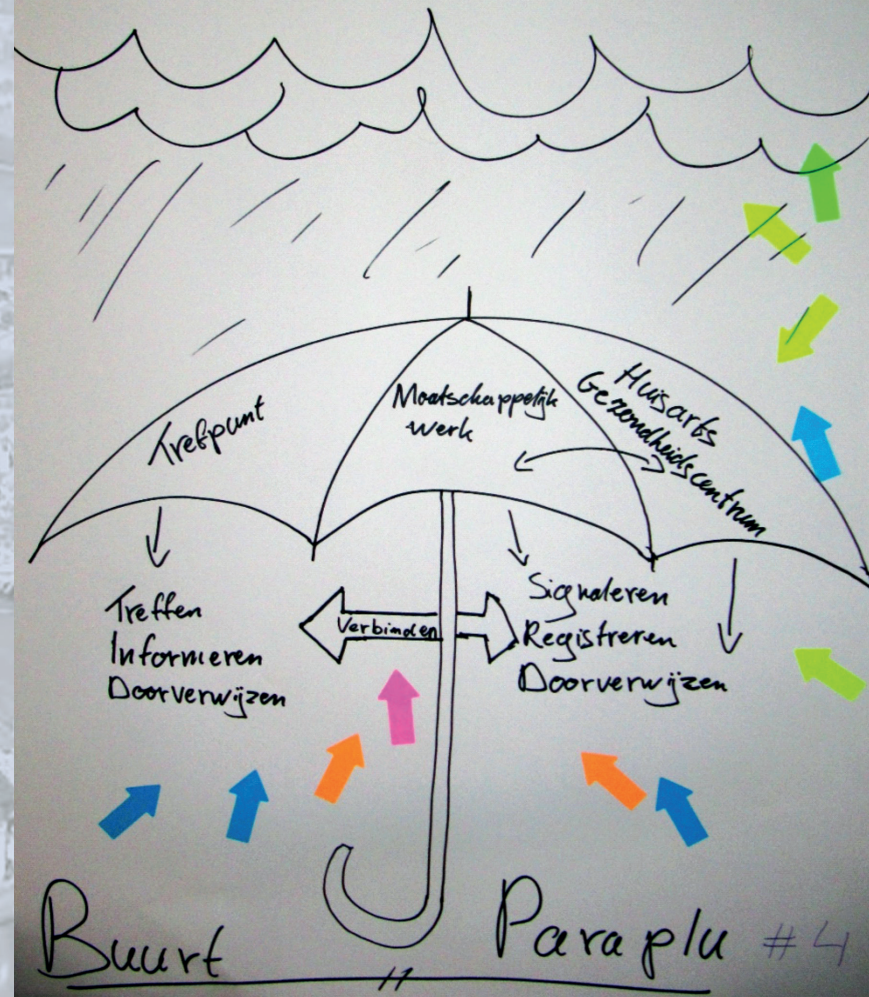 Trefpunt
Maatschappelijk
werk
Huisarts
Gezondheidscentrum
Treffen
Informeren
Doorverwijzen
Verbinden
Signaleren
Registreren
Doorverwijzen
Buurt Paraplu #4